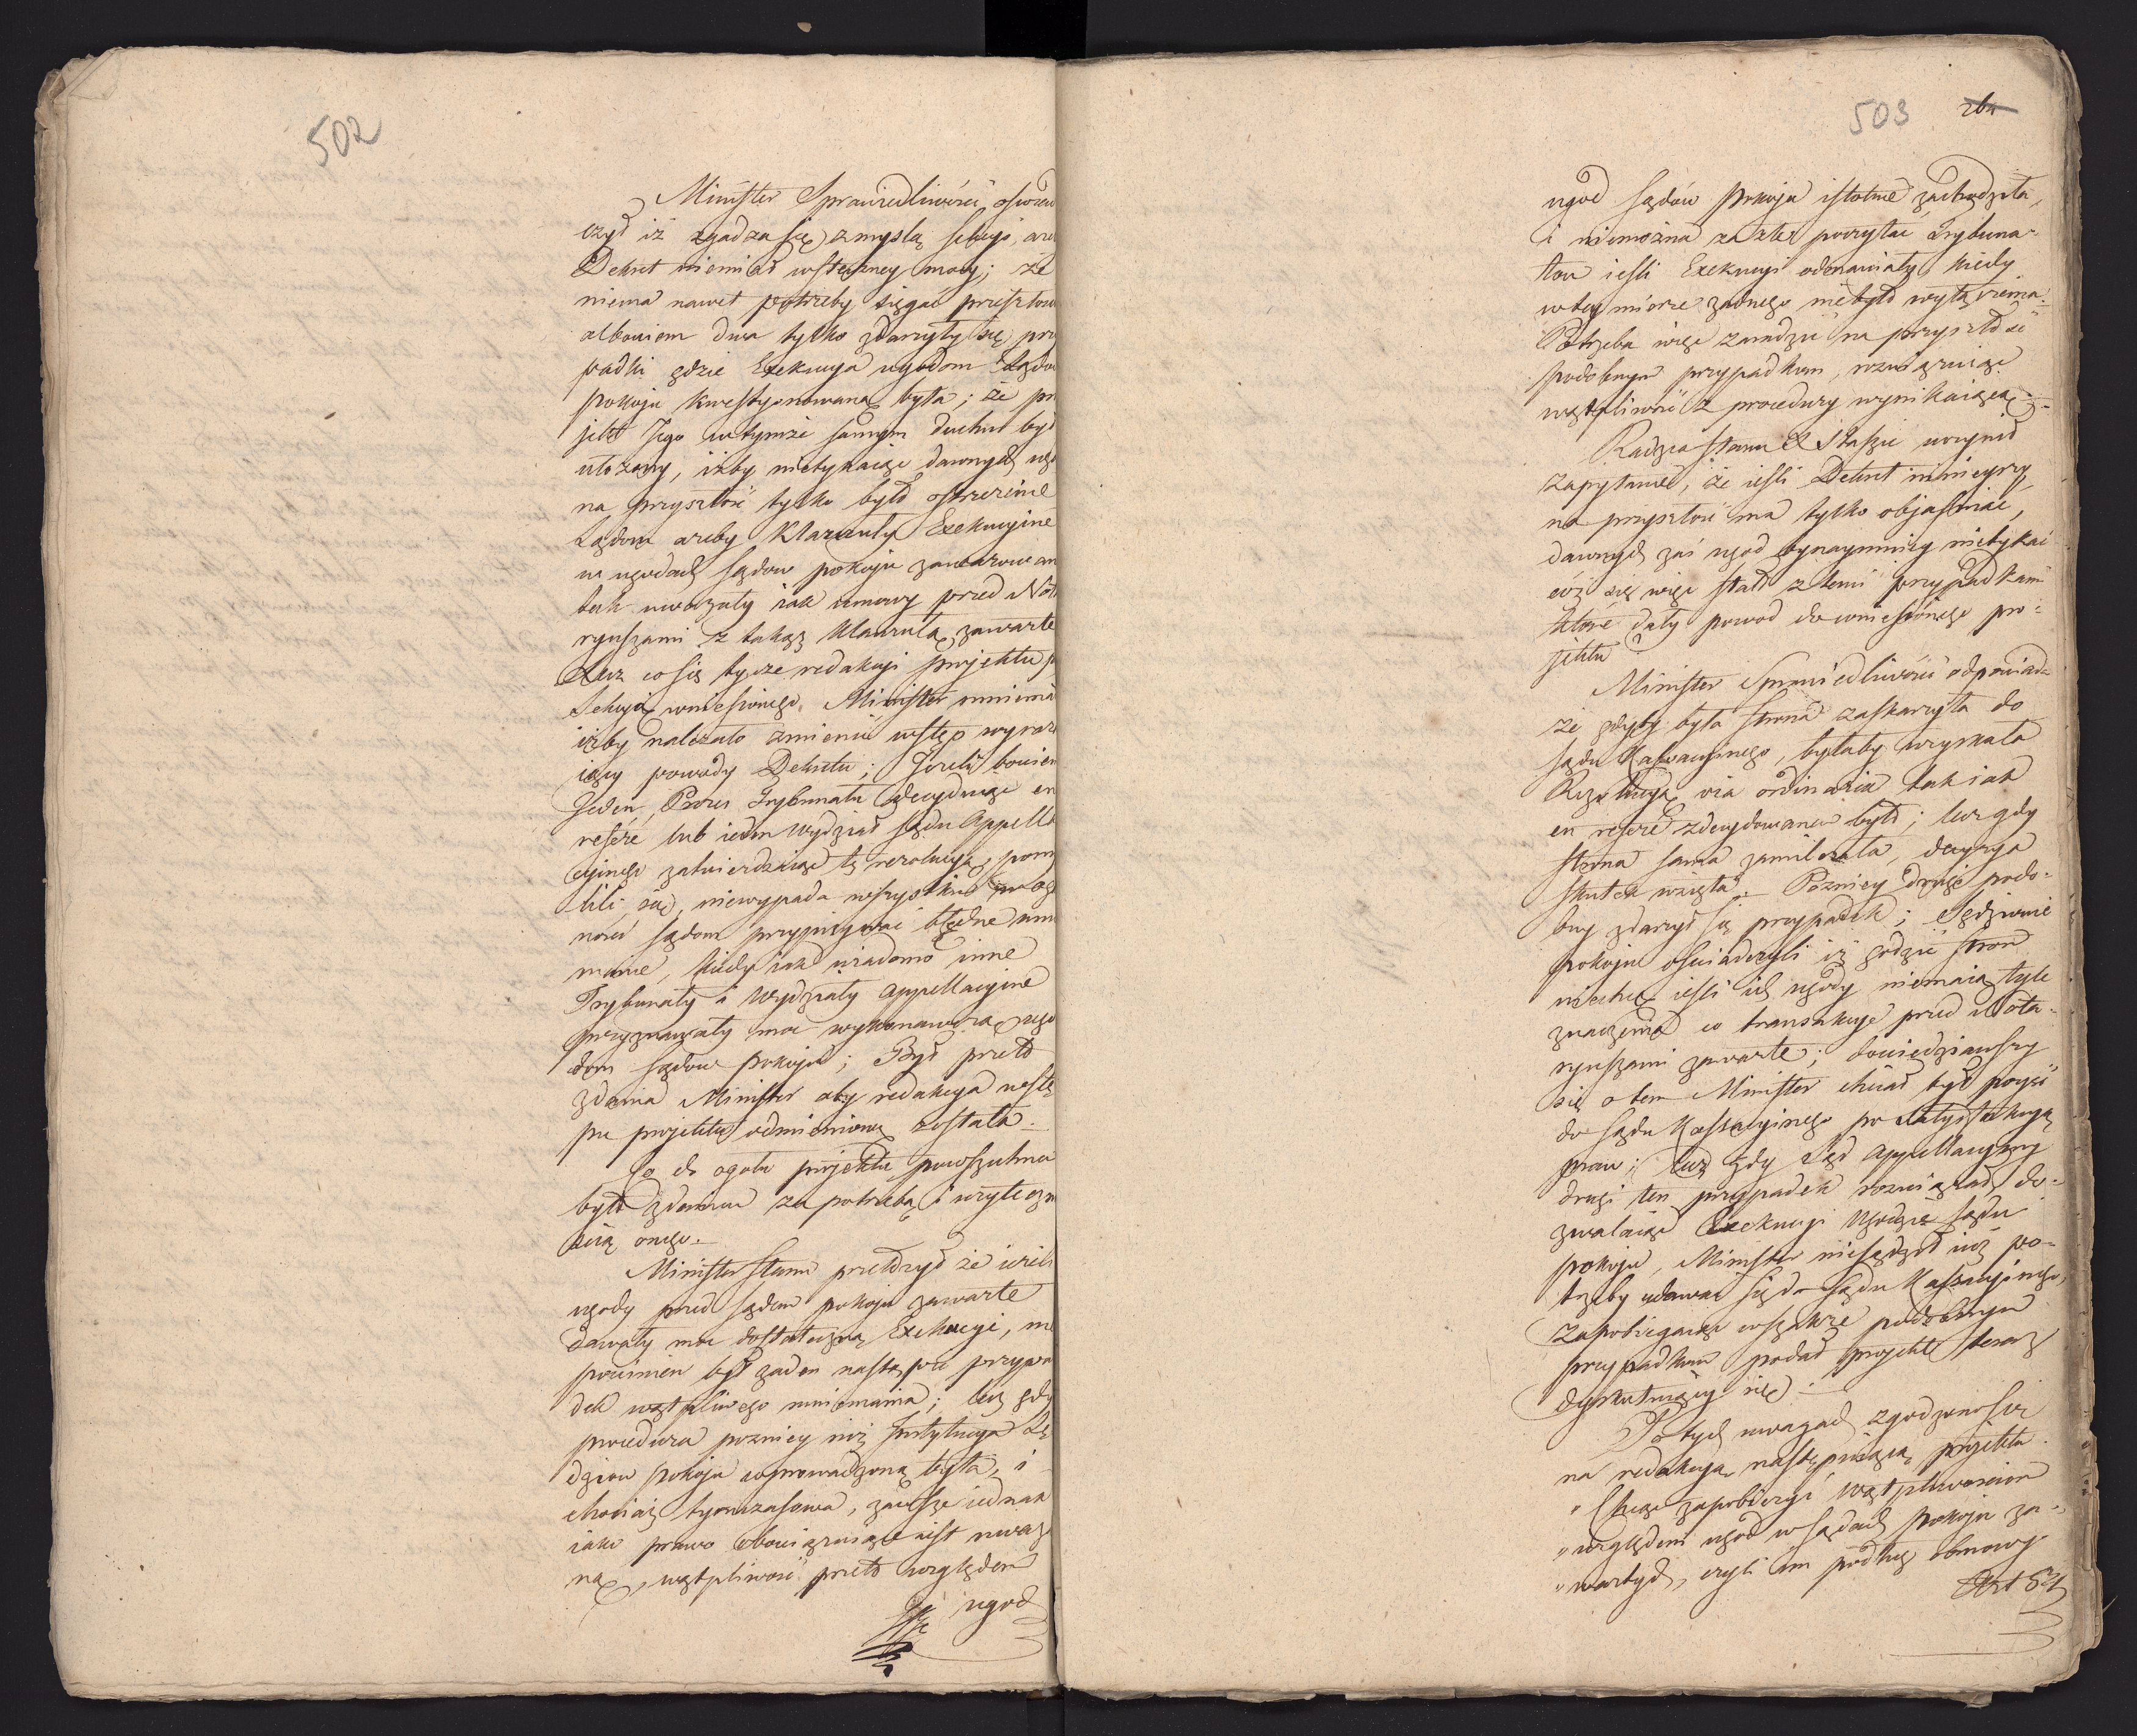 502
Minister Sprawiedliwości oświad
czył iż zgadza się z myslą sekcyi, aże
Dekret niemiał wsteczney mocy; że
niema nawet potrzeby sięgać przeszłos
albowiem dwa tylko zdarzyły się przy
padki gdzie Exekucya ugodom Sądów
pokoju kwestyonowaną była; że pro
jekt Jego w tymże samym duchu był
ułożony, iżby nietykaiąc dawnych ugo
na przyszłość tylko było ostrzeżone
Sądom ażeby Klauzuly Exekucyine
w ugodach sądow pokoju zawarowan
tak uważały iak umowy przed Nota
ryuszami z takąż klauzulą zawarte
Lecz co się tycze redakcyi projektu p
Sekcyą wniesionego. Minister mniemał
iżby należało zmienić wstęp wyraża
iący powody Dekretu; Jeżeli bowiem
Jeden Prezes Trybunału decydując en
referé lub ieden Wydział Sądu Appella
cyinego zatwierdzaiąc tę rezolucyą, pomy
lili się, niewypada wszystkim
nowo sądom przypisywać błędne mnie
manie, kiedy iak wiadomo inne
Trybunały i Wydziały Appellacyine
przyznawały moc wykonawczą ugo
dom sądow pokoju; Był przeto
zdania Minister aby redakcya wstę
pu projektu odmienioną została.
Co do ogołu projektu powszechne
było zdanie za potrzebą i użyteczno
ścią onego.
Minister Stanu przełożył że ieżeli
ugody przed sądem pokoju zawarte
dawały moc dostateczną Exekucyi, nie
powinien był żaden nastąpić przypa
dek wątpliwego mniemania; lecz gdy
procedura pozniey niż Instytucya Sę
dziow pokoju wprowadzoną była, i
chociaż tymczasowa, zawsze iednak
iako prawo obowiązuiące iest uważa
ną, wątpliwość przeto względem
ugod
503 264
ugod Sądów Pokoju istotnie zachodziła,
i niemożna za złe poczytać Trybuna-
łow iesli Exekucyi odmawiały, kiedy
w tey mierze żadnego niebyło wytłumacz.
Potrzeba więc zaradzić na przyszłość
podobnym przypadkom, rozwiązuiąc
wątpliwość z procedury wynikaiącą.
Radca Stanu X Staszic uczynił
zapytanie, że iesli Dekret ninieyszy
na przyszłość ma tylko obiaśniać,
dawnych zaś ugod bynaymniey nietykać
coż się więc stało z temi przypadkami
które dały powod do wniesionego pro-
jektu
Minister Sprawiedliwości odpowiad-
że gdyby była strona zaskarzyła do
Sądu Kassacyinego, byłaby uzyskała
Rezolucyą via ordinaria tak iak
en referé zdecydowane było; lecz gdy
strona sama zamilczała, decyzya
skutek wzięła. Pozniey drugi podo-
bny zdarzył się przypadek; Sędziowie
pokoju oświadczyli iż godzić stron
niechcą iesli ich ugody niemaią tyle
znaczenia co transakcye przed Nota-
ryuszami zawarte; dowiedziawszy
się o tem Minister chciał był poyść
do Sądu Kassacyinego po satysfakcyą
praw; lecz gdy Sąd Appellacyiny
drugi ten przypadek rozwiązał, do-
zwalaiąc Exekucyi Ugodzie Sądu
pokoju, Minister niesądził iuż po-
trzeby udawać się do Sądu Kassacyinego,
Zapobiegaiąc wszakże podobnym
przypadkom podał projekt teraz
dyskutuiący się.
Po tych uwagach zgodzono się
na redakcyą następuiącą projektu
„Chcąc zapobiedz wątpliwościom
„względem ugod w sądach pokoju za-
„wartych, czyli im podług osnowy
Art 54